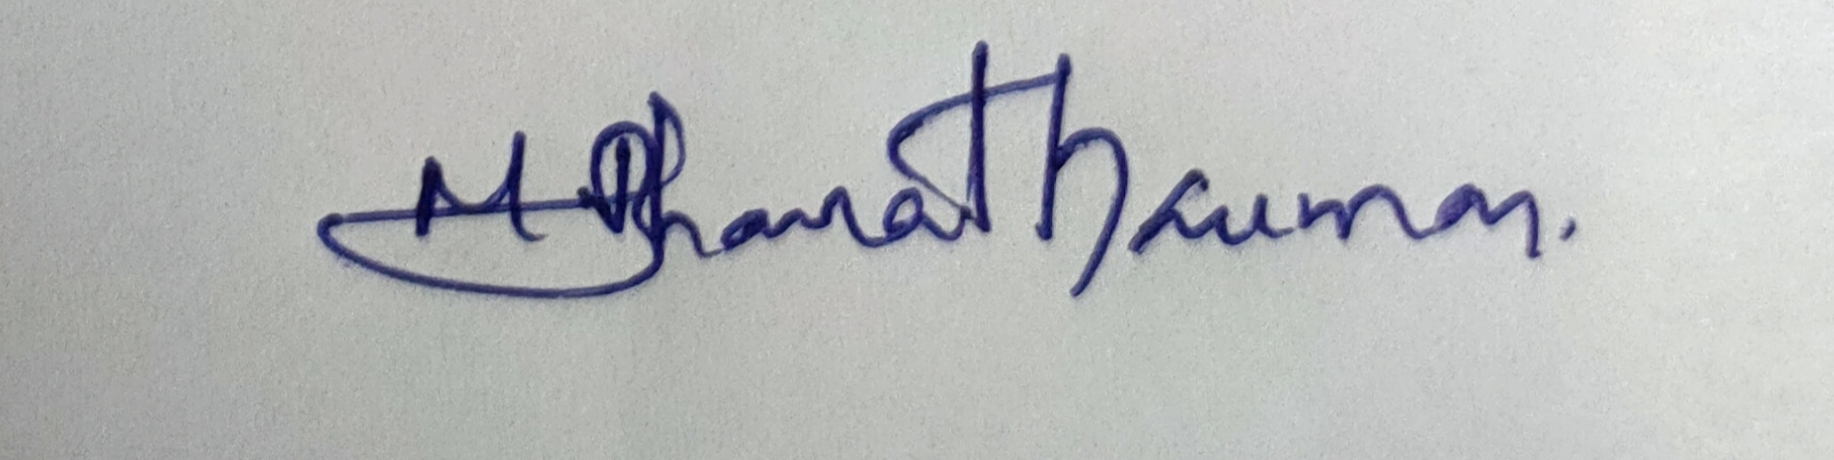 M Bharath kumar.